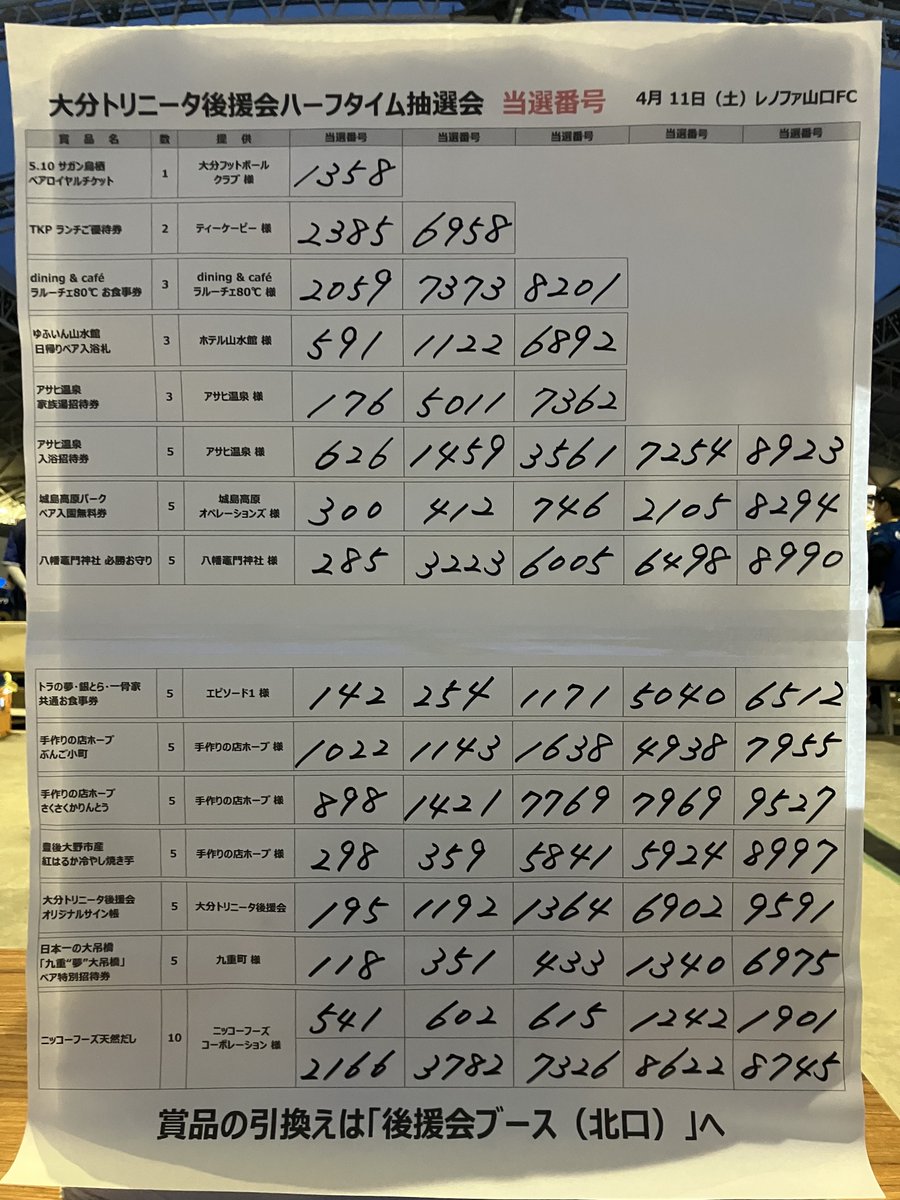 大分トリニータ後援会ハーフタイム抽選会 当選番号 4月 11日（土）レノファ山口FC
賞 品 名 数 提 供 当選番号 当選番号 当選番号 当選番号 当選番号
5.10 サガン鳥栖
ペアロイヤルチケット
1
大分フットボール
クラブ 様
1358
TKP ランチご優待券 2 ティーケーピー 様 2385 6958
dining & café
ラルーチェ80℃ お食事券
3
dining & café
ラルーチェ80℃ 様
2059 7373 8201
ゆふいん山水館
日帰りペア入浴札
3 ホテル山水館 様 591 1122 6892
アサヒ温泉
家族湯招待券
3 アサヒ温泉 様 176 5011 7362
アサヒ温泉
入浴招待券
5 アサヒ温泉 様 626 1459 3561 7254 8923
城島高原パーク
ペア入園無料券
5
城島高原
オペレーションズ 様
300 412 746 2105 8294
八幡竈門神社 必勝お守り 5 八幡竈門神社 様 285 3223 6005 6498 8990
トラの夢・銀とら・一骨家
共通お食事券
5 エピソード1 様 142 254 1171 5040 6512
手作りの店ホープ
ぶんご小町
5 手作りの店ホープ 様 1022 1143 1638 4938 7955
手作りの店ホープ
さくさくかりんとう
5 手作りの店ホープ 様 898 1421 7769 7969 9527
豊後大野市産
紅はるか冷やし焼き芋
5 手作りの店ホープ 様 298 359 5841 5924 8997
大分トリニータ後援会
オリジナルサイン帳
5 大分トリニータ後援会 195 1192 1364 6902 9591
日本一の大吊橋
「九重“夢”大吊橋」
ペア特別招待券
5 九重町 様 118 351 433 1340 6975
ニッコーフーズ天然だし 10
ニッコーフーズ
コーポレーション 様
541 602 615 1242 1901
2166 3782 7326 8622 8745
賞品の引換えは「後援会ブース（北口）」へ